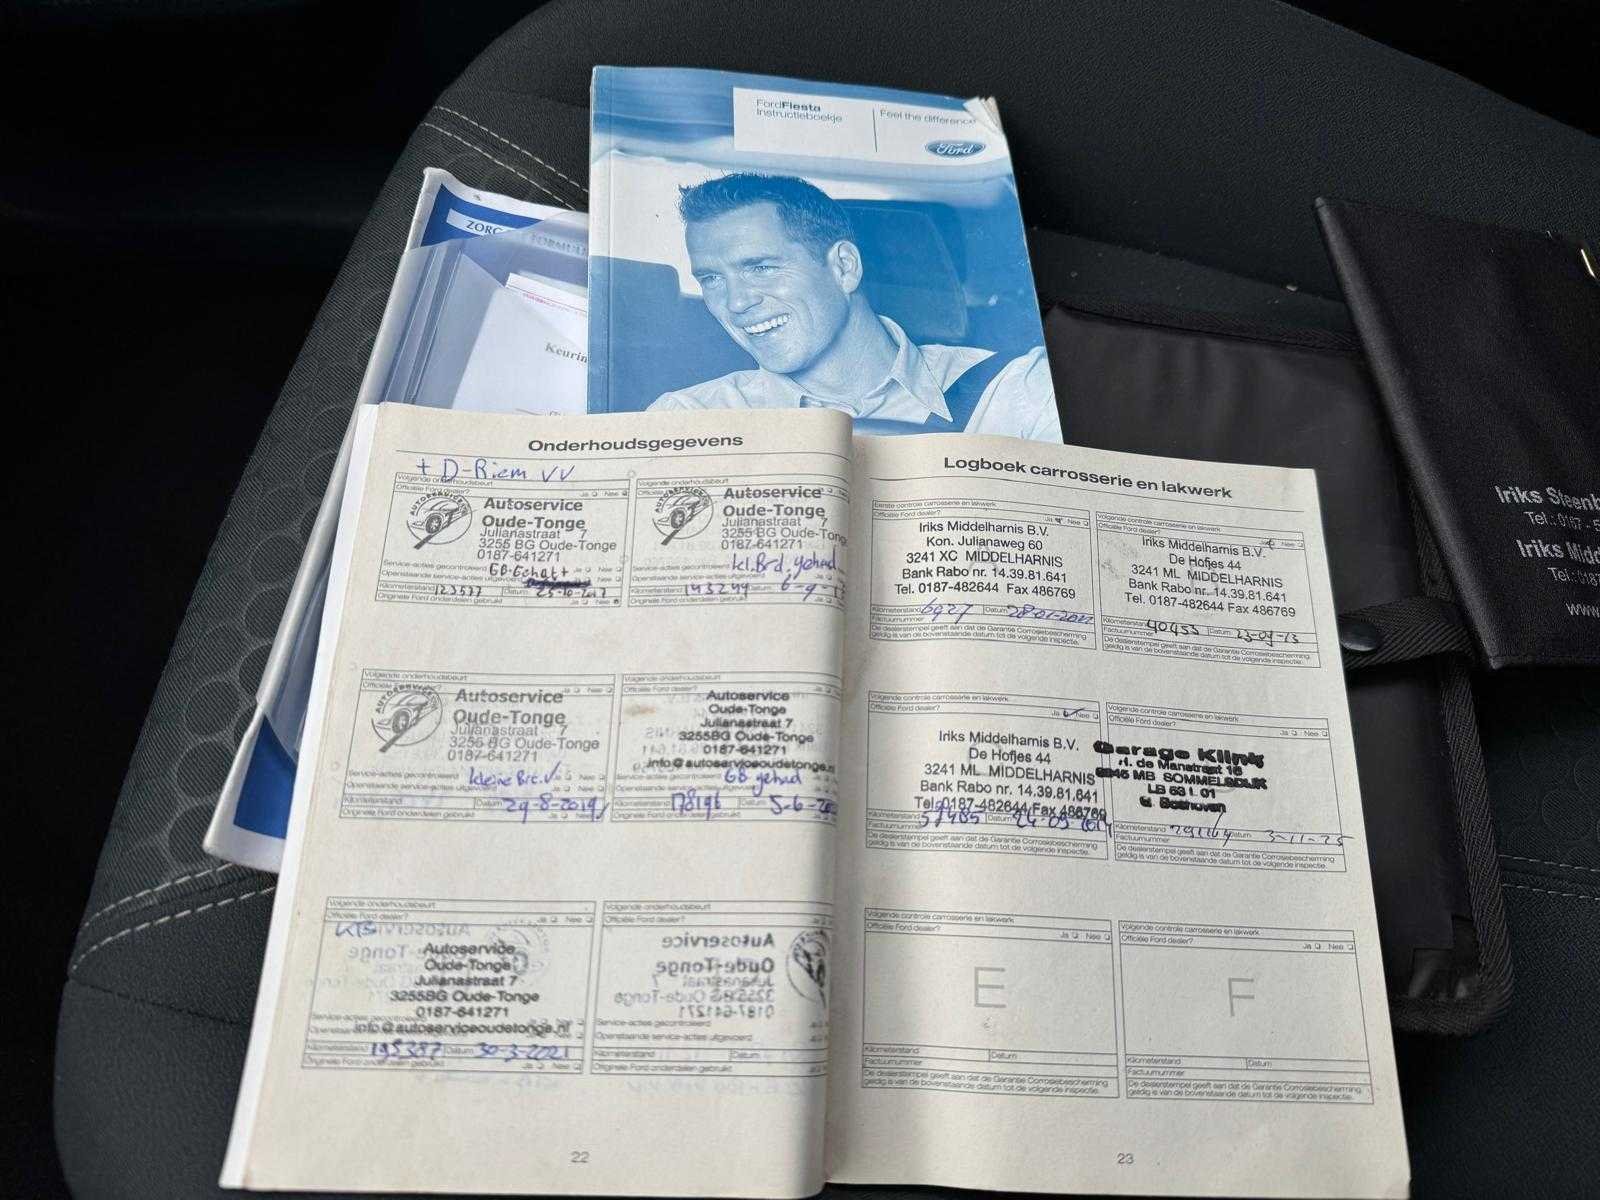 FordFiesta
Instructieboekje
Feel the difference
Ford
Keurin
Iriks Steenb
Iriks Midd
www.
Onderhoudsgegevens
+ D-Riem VV
Volgende onderhoudsbeurt
Officiële Ford dealer? Ja Nee
AUTOSERVICE
Autoservice
Oude-Tonge
Julianastraat 7
3255 BG Oude-Tonge
0187-641271
Service-acties gecontroleerd
Openstaande service-acties uitgevoerd
Kilometerstand Datum 25-10-2017
Originele Ford onderdelen gebruikt Ja Nee
Volgende onderhoudsbeurt
Officiële Ford dealer? Ja Nee
Autoservice
Oude-Tonge
Julianastraat 7
3255 BG Oude-Tonge
0187-641271
Service-acties gecontroleerd kl. Brt. gehad
Openstaande service-acties uitgevoerd
Kilometerstand 143249 Datum 6-9-1
Originele Ford onderdelen gebruikt
Volgende onderhoudsbeurt
AUTOSERVICE
Autoservice
Oude-Tonge
Julianastraat 7
3255 BG Oude-Tonge
0187-641271
Service-acties gecontroleerd kleine Brt.
Openstaande service-acties uitgevoerd
Kilometerstand Datum 29-8-2019
Originele Ford onderdelen gebruikt Ja Nee
Volgende onderhoudsbeurt
Officiële Ford dealer?
Autoservice
Oude-Tonge
Julianastraat 7
3255BG Oude-Tonge
0187-641271
info@autoserviceoudetonge.nl
Service-acties gecontroleerd GB gehad
Openstaande service-acties uitgevoerd
Kilometerstand 178196 Datum 5-6-20
Originele Ford onderdelen gebruikt
Volgende onderhoudsbeurt
Officiële Ford dealer? Ja Nee
KTB
Autoservice
Oude-Tonge
Julianastraat 7
3255BG Oude-Tonge
0187-641271
Service-acties gecontroleerd
info@autoserviceoudetonge.nl
Kilometerstand 195387 Datum 30-3-2021
Originele Ford onderdelen gebruikt Ja Nee
Volgende onderhoudsbeurt
Officiële Ford dealer? Ja Nee
Service-acties gecontroleerd
Openstaande service-acties uitgevoerd
Kilometerstand Datum
Originele Ford onderdelen gebruikt
22
Logboek carrosserie en lakwerk
Eerste controle carrosserie en lakwerk
Officiële Ford dealer? Ja Nee
Iriks Middelharnis B.V.
Kon. Julianaweg 60
3241 XC MIDDELHARNIS
Bank Rabo nr. 14.39.81.641
Tel. 0187-482644 Fax 486769
Kilometerstand 6927 Datum 28-01-2012
Factuurnummer
De dealerstempel geeft aan dat de Garantie Corrosiebescherming
geldig is van de bovenstaande datum tot de volgende inspectie.
Volgende controle carrosserie en lakwerk
Officiële Ford dealer? Ja Nee
Iriks Middelharnis B.V.
De Hofjes 44
3241 ML MIDDELHARNIS
Bank Rabo nr. 14.39.81.641
Tel. 0187-482644 Fax 486769
Kilometerstand 40453 Datum 23-09-13
Factuurnummer
De dealerstempel geeft aan dat de Garantie Corrosiebescherming
geldig is van bovenstaande datum tot de volgende inspectie.
Volgende controle carrosserie en lakwerk
Officiële Ford dealer? Ja Nee
Iriks Middelharnis B.V.
De Hofjes 44
3241 ML MIDDELHARNIS
Bank Rabo nr. 14.39.81.641
Tel. 0187-482644 Fax 486769
Kilometerstand Datum
Factuurnummer
De dealerstempel geeft aan dat de Garantie Corrosiebescherming
geldig is van bovenstaande datum tot de volgende inspectie.
Volgende controle carrosserie en lakwerk
Officiële Ford dealer? Ja Nee
Garage Klink
SOMMELSDIJK
Kilometerstand Datum 3-11-25
Factuurnummer
De dealerstempel geeft aan dat de Garantie Corrosiebescherming
geldig is van bovenstaande datum tot de volgende inspectie.
Volgende controle carrosserie en lakwerk
Officiële Ford dealer? Ja Nee
E
Kilometerstand Datum
Factuurnummer
De dealerstempel geeft aan dat de Garantie Corrosiebescherming
geldig is van bovenstaande datum tot de volgende inspectie.
Volgende controle carrosserie en lakwerk
Officiële Ford dealer? Ja Nee
F
Kilometerstand Datum
Factuurnummer
De dealerstempel geeft aan dat de Garantie Corrosiebescherming
geldig is van bovenstaande datum tot de volgende inspectie.
23